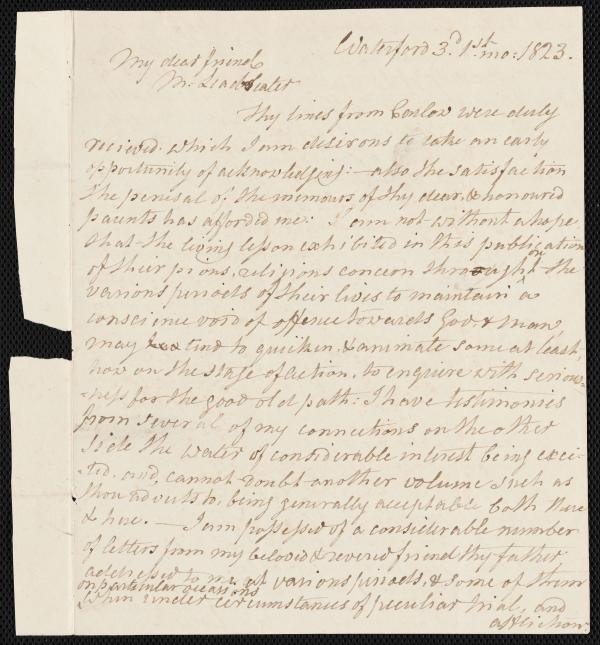 Waterford 3.d 1st mo: 1823.
My dear friend
M. Leadbeater
Thy lines from Carlow were duly
recieved. which I am desirous to take an early
opportunity of acknowledging: — also the satisfaction
the perusal of the memoirs of thy dear, & honoured
parents has afforded me: I am not without a hope
that the living lesson exhibited in this publication
of their pious, religious concern through on the
various periods of their lives to maintain a
conscience void of offence towards God & man,
may tend to quicken, & animate some at least,
now on the stage of action, to enquire with serious-
-ness for the good old path: I have testimonies
from several of my connections on the other
side the water of considerable interest being exci-
-ted. and cannot doubt another volume such as
thou adverts to, being generally acceptable both there
& here. — I am possessed of a considerable number
of letters from my beloved & revered friend thy father
addressed to me at various periods, & some of them
on particular occasions
when under circumstances of peculiar trial, and